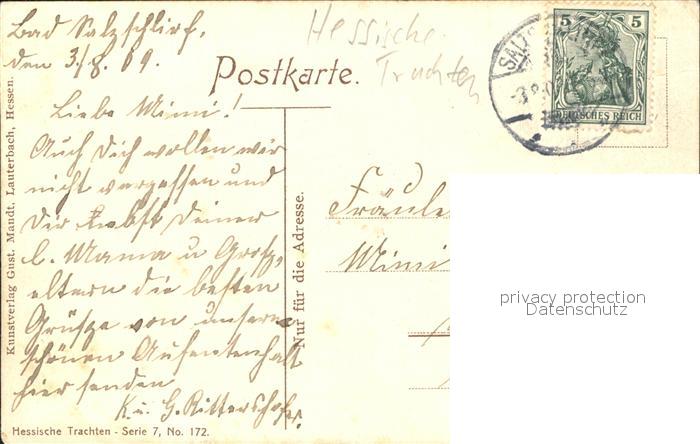 Bad Salzschlirf,
den 3./8. 09.
Hessische
Trachten
Postkarte.
5 5
DEUTSCHES REICH
Liebe Mimi!
Auch Dich wollen wir
nicht vergessen und
Dir nebst Deiner
l. Mama u Groß-
eltern die besten
Grüße von unserm
schönen Aufenthalt
hier senden
K. u. G. Rittershofer.
Fräule
Mimi
Nur für die Adresse.
Kunstverlag Gust. Mandt, Lauterbach, Hessen.
Hessische Trachten - Serie 7, No. 172.
privacy protection
Datenschutz